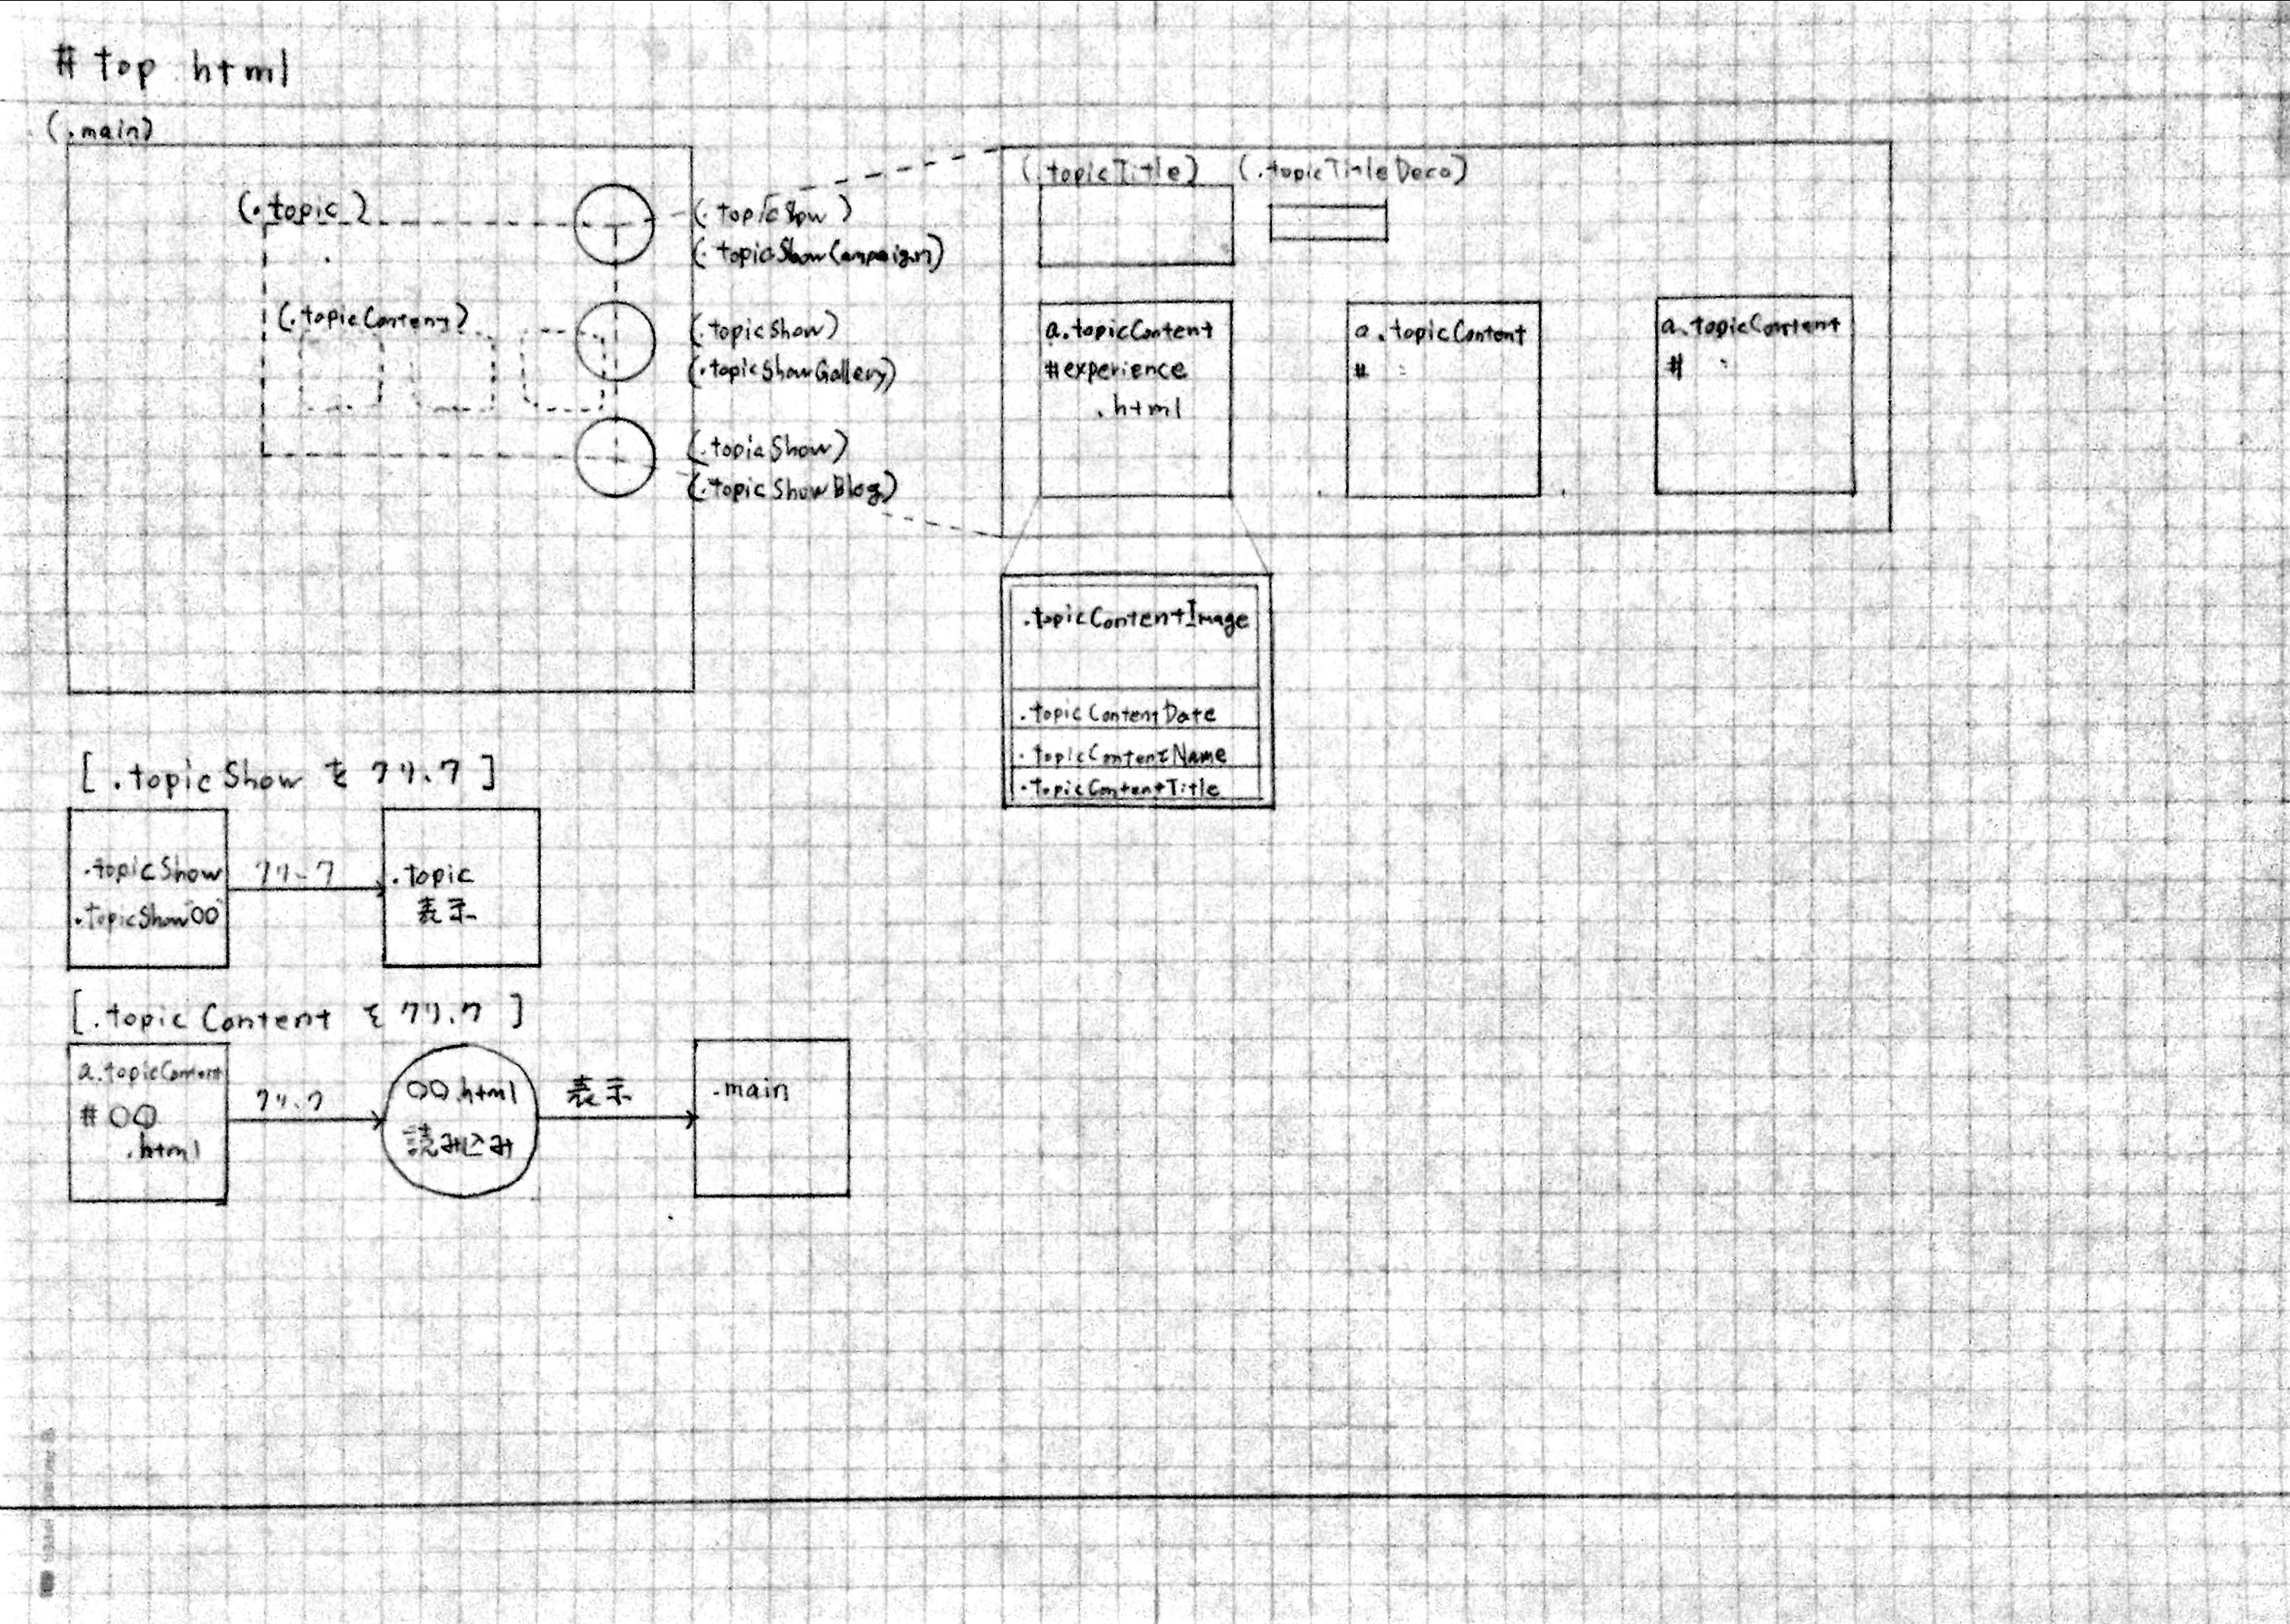 # top.html
(.main)
(.topic)
(.topicShow)
(.topicShowCampaign)
(.topicContent)
(.topicShow)
(.topicShowGallery)
(.topicShow)
(.topicShowBlog)
(.topicTitle) (.topicTitleDeco)
a.topicContent
#experience
.html
a.topicContent
# :
a.topicContent
# :
.topicContentImage
.topicContentDate
.topicContentName
.topicContentTitle
[.topicShow を クリック]
.topicShow
.topicShow"○○"
クリック
.topic
表示
[.topicContent を クリック]
a.topicContent
#○○
.html
クリック
○○.html
読み込み
表示
.main